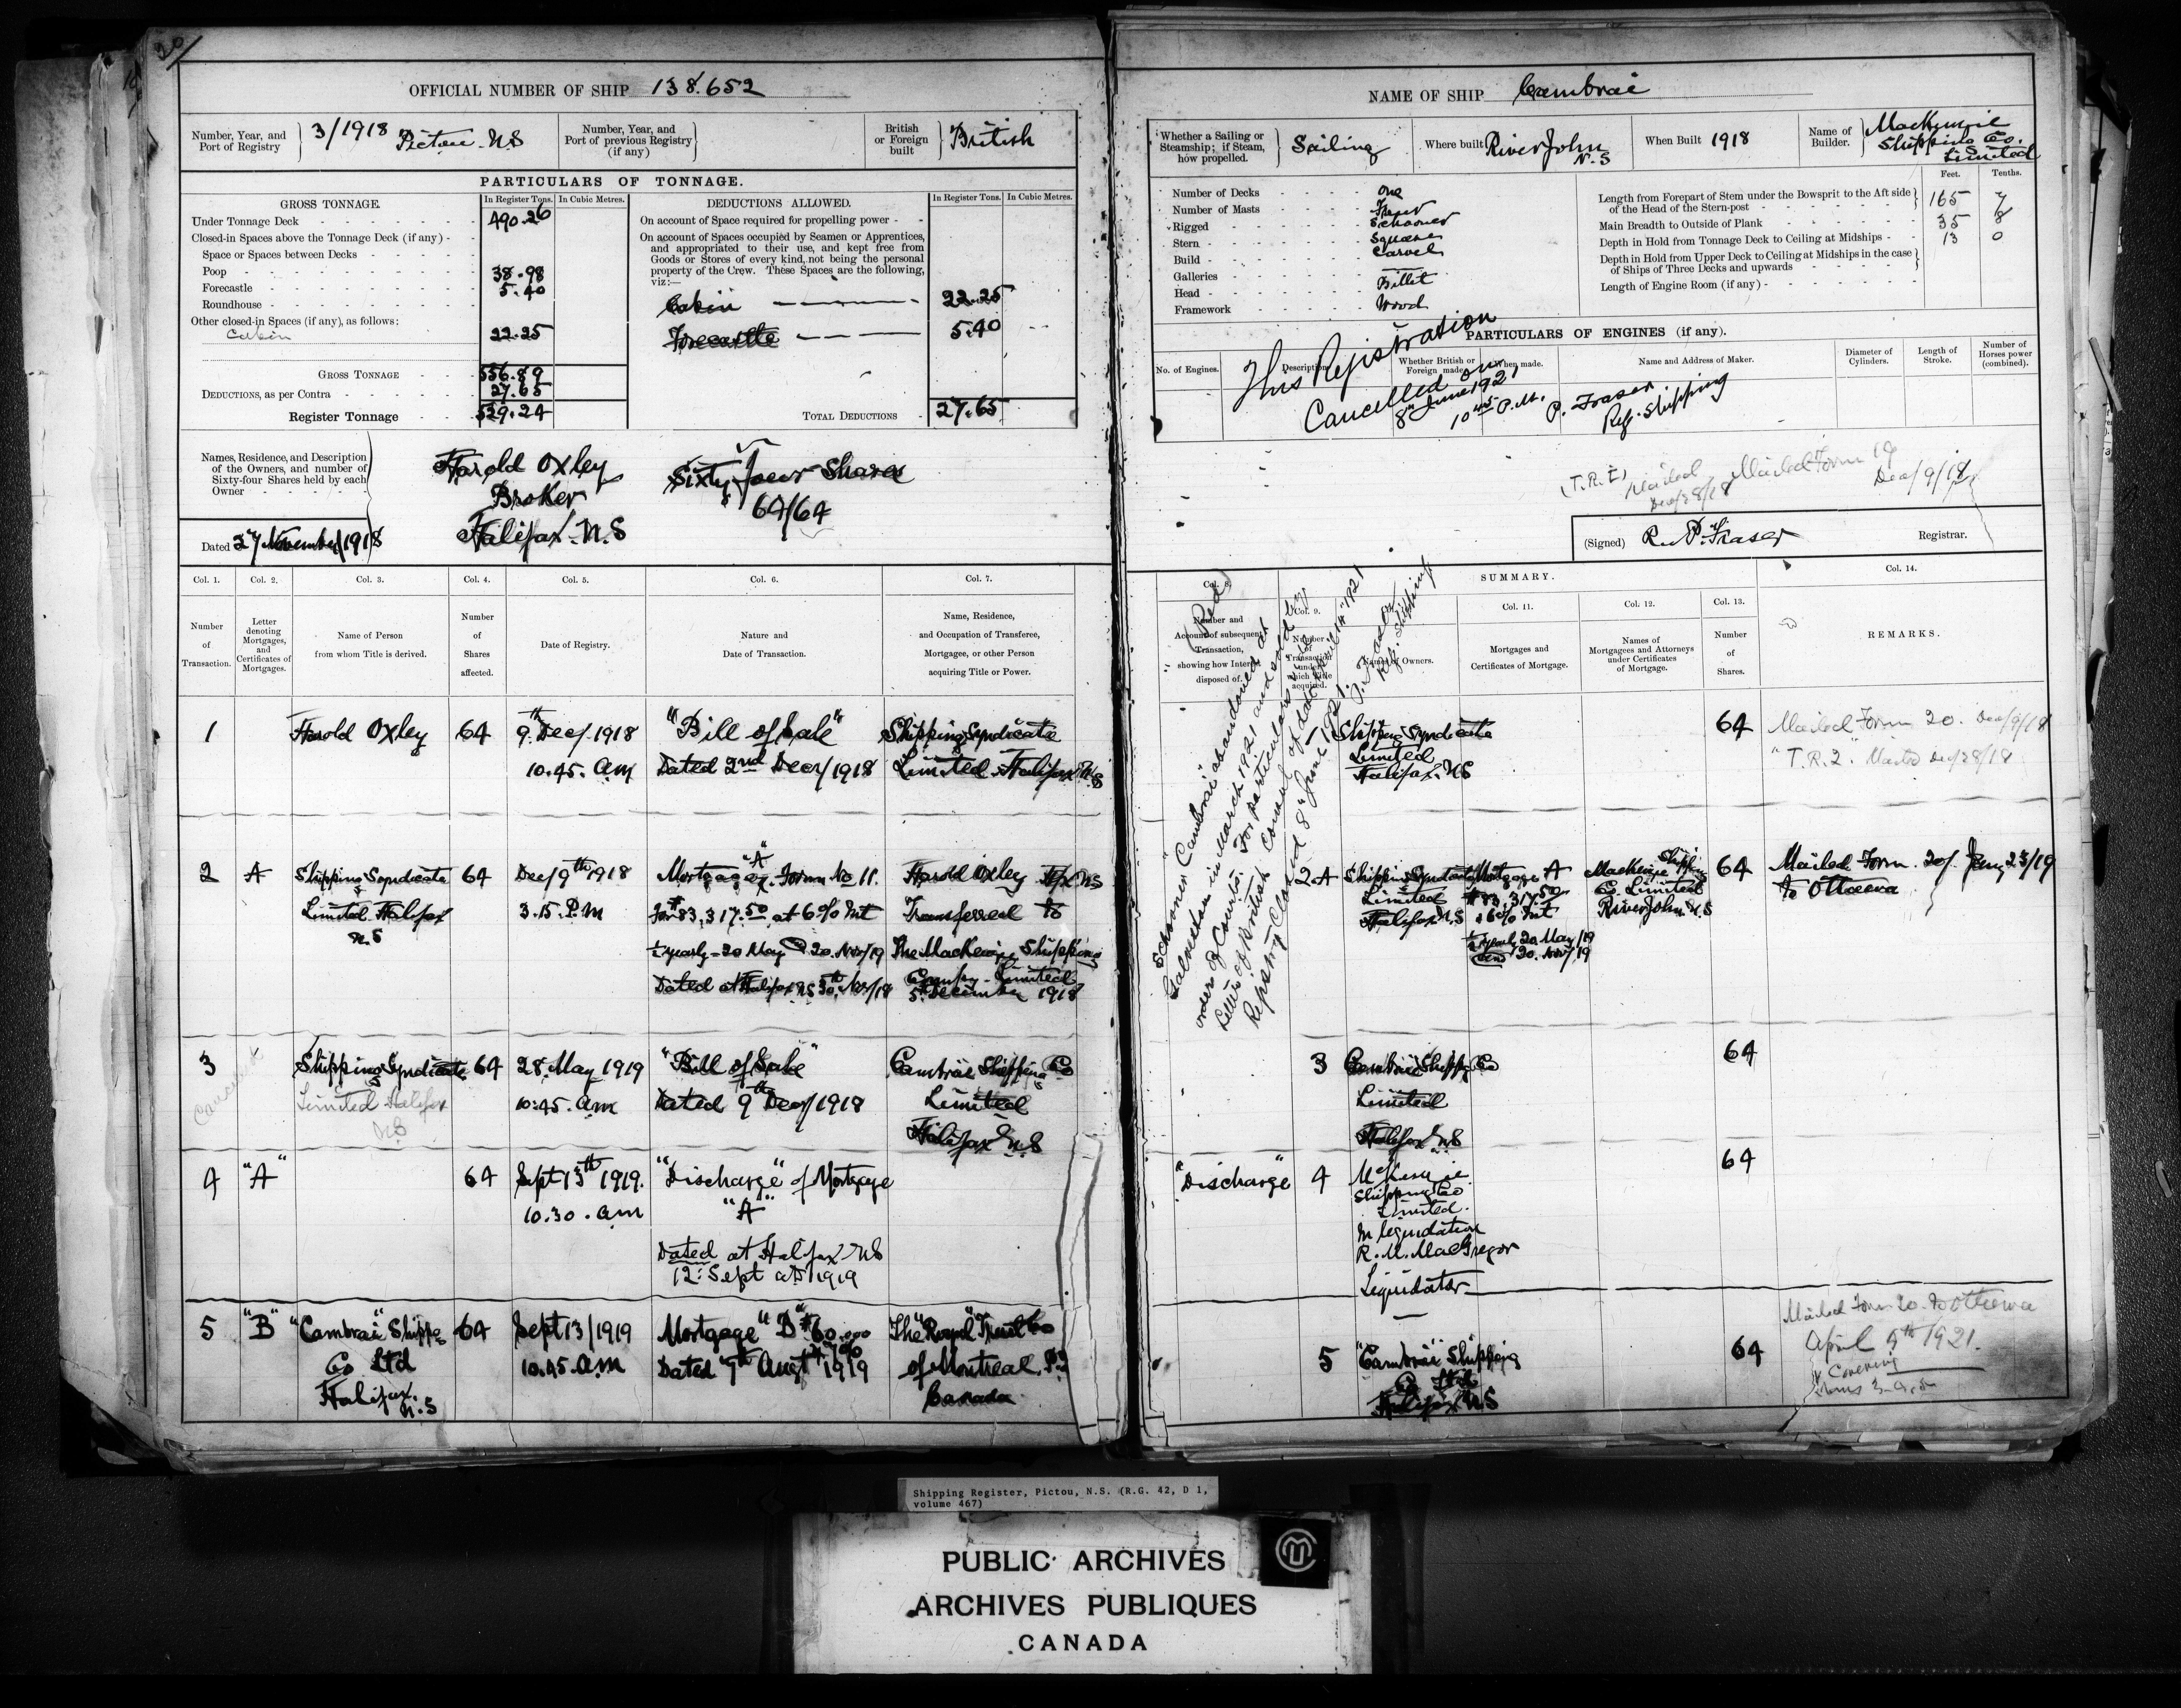 20/
OFFICIAL NUMBER OF SHIP 138.652
Number, Year, and Port of Registry } 3/1918 Pictou N.S
Number, Year, and Port of previous Registry (if any) }
British or Foreign built } British
PARTICULARS OF TONNAGE.
GROSS TONNAGE. In Register Tons. In Cubic Metres.
Under Tonnage Deck 490.26
Closed-in Spaces above the Tonnage Deck (if any)
Space or Spaces between Decks
Poop 38.98
Forecastle 5.40
Roundhouse
Other closed-in Spaces (if any), as follows:
Cabin 22.25
GROSS TONNAGE 556.89
DEDUCTIONS, as per Contra 27.65
Register Tonnage 529.24
DEDUCTIONS ALLOWED. In Register Tons. In Cubic Metres.
On account of Space required for propelling power
On account of Spaces occupied by Seamen or Apprentices,
and appropriated to their use, and kept free from
Goods or Stores of every kind, not being the personal
property of the Crew. These Spaces are the following,
viz:—
Cabin 22.25
Forecastle 5.40
TOTAL DEDUCTIONS 27.65
Names, Residence, and Description
of the Owners, and number of
Sixty-four Shares held by each
Owner
Harold Oxley
Broker
Halifax N.S
Sixty four Shares
64/64
Dated 27 November 1918
Col. 1. Col. 2. Col. 3. Col. 4. Col. 5. Col. 6. Col. 7.
Number of Transaction.
Letter denoting Mortgages, and Certificates of Mortgages.
Name of Person from whom Title is derived.
Number of Shares affected.
Date of Registry.
Nature and Date of Transaction.
Name, Residence, and Occupation of Transferee, Mortgagee, or other Person acquiring Title or Power.
1 Harold Oxley 64 9th Dec/1918 "Bill of Sale" Shipping Syndicate
10.45. am Dated 2nd Dec/1918 Limited Halifax N.S
2 A Shipping Syndicate 64 Dec/9th 1918 Mortgage "A" Form No 11. Harold Oxley Hfx NS
Limited Halifax 3.15. P.M for $83,317.50 at 6% Int Transferred to
N.S ½ yearly - 20 May 20. Nov/19 The MacKenzie Shipping
Dated at Halifax NS 30th Nov/18 Company Limited
5th December 1918
3 Shipping Syndicate 64 28. May 1919 "Bill of Sale" Cambrai Shipping Co
Limited Halifax 10.45. am Dated 9th Dec/1918 Limited
NS Halifax N.S
Cancelled
4 "A" 64 Sept 13th 1919. "Discharge" of Mortgage
10.30. am "A"
Dated at Halifax NS
12. Sept AD 1919
5 "B" "Cambrai" Shippg 64 Sept 13/1919 Mortgage "B" $60.000
Co Ltd 10.45. a.m 7%
Halifax. N.S Dated 9th Augt 1919
The "Royal" Trust Co
of Montreal. P.Q
Canada
NAME OF SHIP Cambrai
Whether a Sailing or Steamship; if Steam, how propelled. } Sailing
Where built River John N.S
When Built 1918
Name of Builder. } MacKenzie Shipping Co. Limited
Number of Decks One
Number of Masts Four
Rigged Schooner
Stern Square
Build Carvel
Galleries
Head Billet
Framework Wood
Feet. Tenths.
Length from Forepart of Stem under the Bowsprit to the Aft side
of the Head of the Stern-post 165 7
Main Breadth to Outside of Plank 35 8
Depth in Hold from Tonnage Deck to Ceiling at Midships 13 0
Depth in Hold from Upper Deck to Ceiling at Midships in the case
of Ships of Three Decks and upwards
Length of Engine Room (if any)
PARTICULARS OF ENGINES (if any).
No. of Engines. Description. Whether British or Foreign made. When made. Name and Address of Maker. Diameter of Cylinders. Length of Stroke. Number of Horses power (combined).
This Registration
Cancelled on
8th June 1921
10.45 P.M.
P. Fraser
Reg. Shipping
(T.R.I) Mailed Dec/28/18
Mailed Form 19 Dec/9/18
(Signed) R. P. Fraser Registrar.
SUMMARY.
Col. 8. Col. 9. Col. 11. Col. 12. Col. 13. Col. 14.
Number and Account of subsequent Transaction, showing how Interest disposed of.
Number of Transaction under which Title acquired.
Names of Owners.
Mortgages and Certificates of Mortgage.
Names of Mortgagees and Attorneys under Certificates of Mortgage.
Number of Shares.
REMARKS.
(Red)
Schooner "Cambrai" abandoned at
Galveston in March 1921 and sold by
order of Courts. For particulars see
Letter of British Consul of date April 14th 1921
Registry Closed 8th June 1921. P. Fraser
Reg. Shipping
Shipping Syndicate
Limited
Halifax. NS
64
Mailed Form 20. Dec/9/18
"T.R.2." Mailed Dec/28/18
2.A Shipping Syndicate
Limited
Halifax N.S
Mortgage A
$83,317.50
+6% Int
½ yearly 20 May/19
and 20. Nov/19
MacKenzie Shippg
Co. Limited
River John N.S
64
Mailed Form. 20/ Jany 23/19
to Ottawa
3 Cambrai Shippg Co
Limited
Halifax NS
64
"Discharge" 4 McKenzie
Shipping Co
Limited.
In liquidation
R. M. MacGregor
Liquidator
64
5 "Cambrai" Shipping
Co Ltd
Halifax NS
64
Mailed Form 20. to Ottawa
April 9th 1921.
Covering
Shipping Register, Pictou, N.S. (R.G. 42, D 1,
volume 467)
PUBLIC ARCHIVES
ARCHIVES PUBLIQUES
CANADA